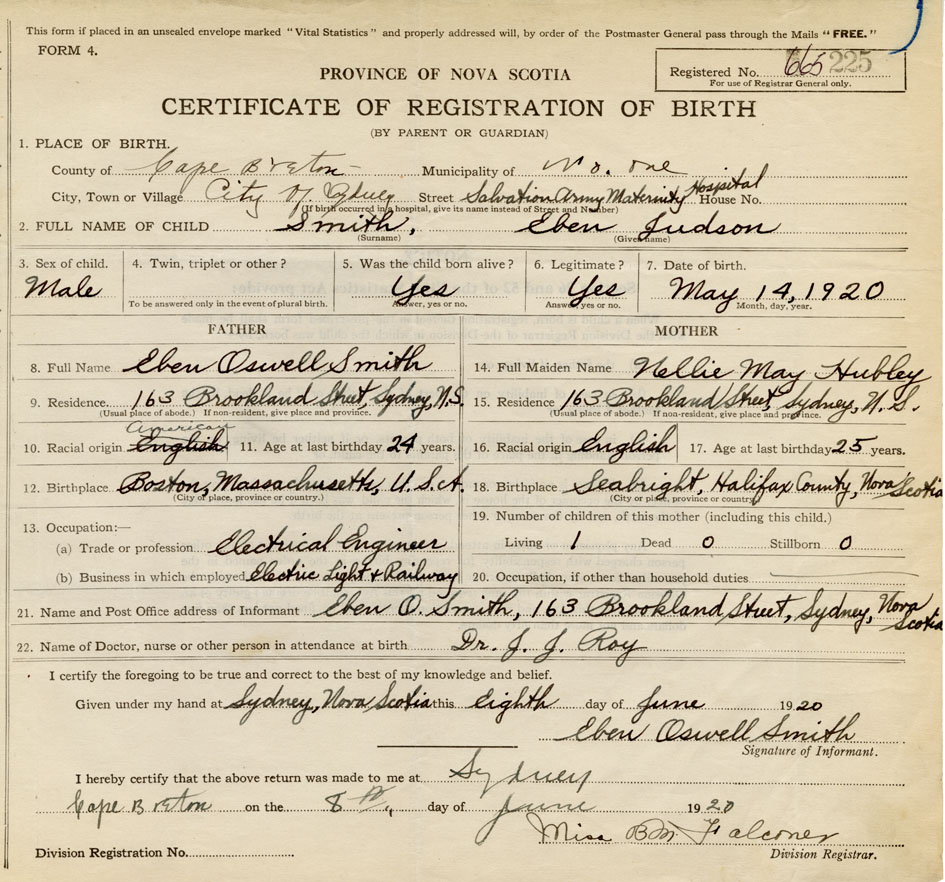 This form if placed in an unsealed envelope marked "Vital Statistics" and properly addressed will, by order of the Postmaster General pass through the Mails "FREE."
FORM 4.
Registered No. 665 225
For use of Registrar General only.
PROVINCE OF NOVA SCOTIA
CERTIFICATE OF REGISTRATION OF BIRTH
(BY PARENT OR GUARDIAN)
1. PLACE OF BIRTH.
County of Cape Breton Municipality of No. one
City, Town or Village City of Sydney Street Salvation Army Maternity Hospital House No.
(If birth occurred in a hospital, give its name instead of Street and Number)
2. FULL NAME OF CHILD Smith, Eben Judson
(Surname) (Given name)
3. Sex of child. 4. Twin, triplet or other? 5. Was the child born alive? 6. Legitimate? 7. Date of birth.
Male Yes Yes May 14, 1920
To be answered only in the event of plural birth. Answer, yes or no. Answer, yes or no. Month, day, year.
FATHER MOTHER
8. Full Name Eben Oswell Smith 14. Full Maiden Name Nellie May Hubley
9. Residence 163 Brookland Street, Sydney, N.S. 15. Residence 163 Brookland Street, Sydney, N.S.
(Usual place of abode.) If non-resident, give place and province. (Usual place of abode.) If non-resident, give place and province.
American
10. Racial origin English 11. Age at last birthday 24 years. 16. Racial origin English 17. Age at last birthday 25 years.
12. Birthplace Boston, Massachusetts, U.S.A. 18. Birthplace Seabright, Halifax County, Nova Scotia
(City or place, province or country.) (City or place, province or country)
13. Occupation:— 19. Number of children of this mother (including this child.)
(a) Trade or profession Electrical Engineer Living 1 Dead 0 Stillborn 0
(b) Business in which employed Electric Light & Railway 20. Occupation, if other than household duties
21. Name and Post Office address of Informant Eben O. Smith, 163 Brookland Street, Sydney, Nova Scotia
22. Name of Doctor, nurse or other person in attendance at birth Dr. J. J. Roy
I certify the foregoing to be true and correct to the best of my knowledge and belief.
Given under my hand at Sydney, Nova Scotia this Eighth day of June 1920
Eben Oswell Smith
Signature of Informant.
I hereby certify that the above return was made to me at Sydney
Cape Breton on the 8th, day of June 1920
Miss B.M. Falconer
Division Registration No. Division Registrar.